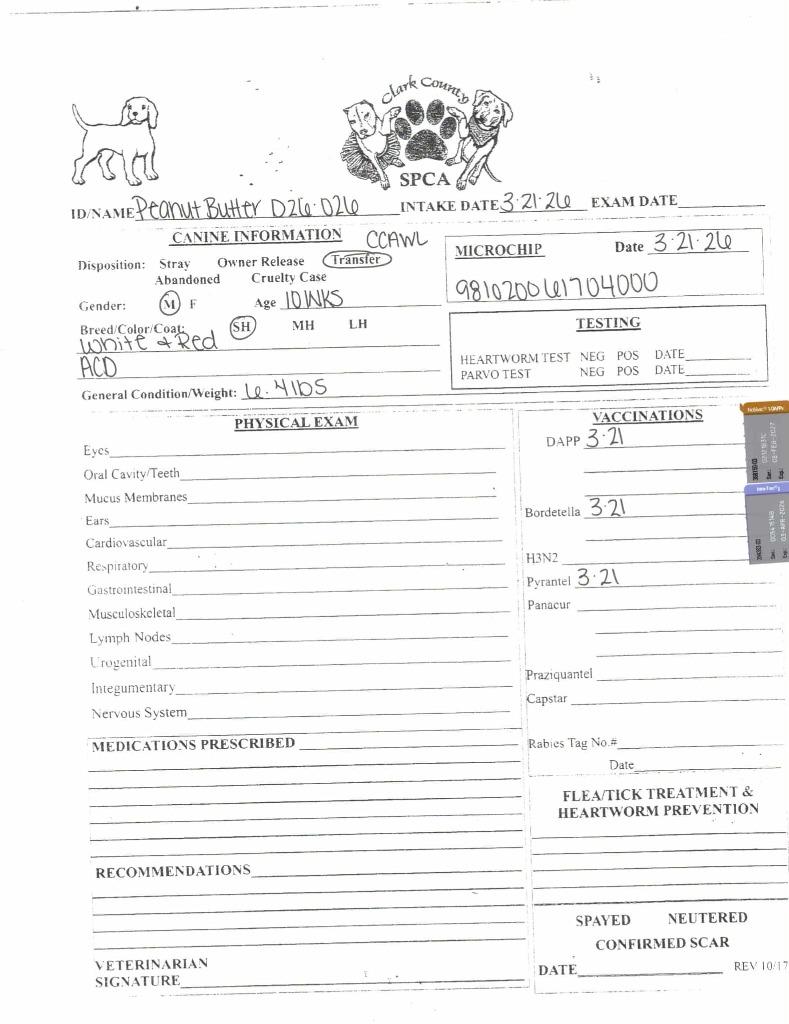 Clark County
SPCA
ID/NAME Peanut Butter D26-026 INTAKE DATE 3-21-26 EXAM DATE
CANINE INFORMATION CCAWL
Disposition: Stray Owner Release Transfer
Abandoned Cruelty Case
Gender: M F Age 10WKS
Breed/Color/Coat: SH MH LH
White & Red
ACD
General Condition/Weight: 6.4lbs
MICROCHIP Date 3-21-26
981020061704000
TESTING
HEARTWORM TEST NEG POS DATE
PARVO TEST NEG POS DATE
PHYSICAL EXAM
Eyes
Oral Cavity/Teeth
Mucus Membranes
Ears
Cardiovascular
Respiratory
Gastrointestinal
Musculoskeletal
Lymph Nodes
Urogenital
Integumentary
Nervous System
MEDICATIONS PRESCRIBED
RECOMMENDATIONS
VETERINARIAN
SIGNATURE
VACCINATIONS
DAPP 3-21
Bordetella 3-21
H3N2
Pyrantel 3-21
Panacur
Praziquantel
Capstar
Rabies Tag No.#
Date
FLEA/TICK TREATMENT &
HEARTWORM PREVENTION
SPAYED NEUTERED
CONFIRMED SCAR
DATE REV 10/17